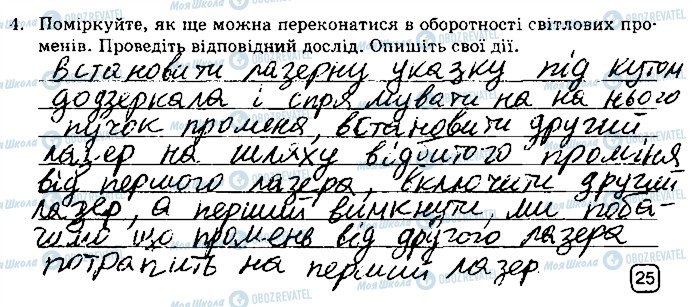 4. Поміркуйте, як ще можна переконатися в оборотності світлових про-
менів. Проведіть відповідний дослід. Опишіть свої дії.
Встановити лазерну указку під кутом
додзеркала і спрямувати на на нього
пучок променя, встановити другий
лазер на шляху відбитого проміня
від першого лазера, включити другий
лазер, а перший вимкнути, ми поба-
чимо що промень від другого лазера
потрапить на перший лазер.
25